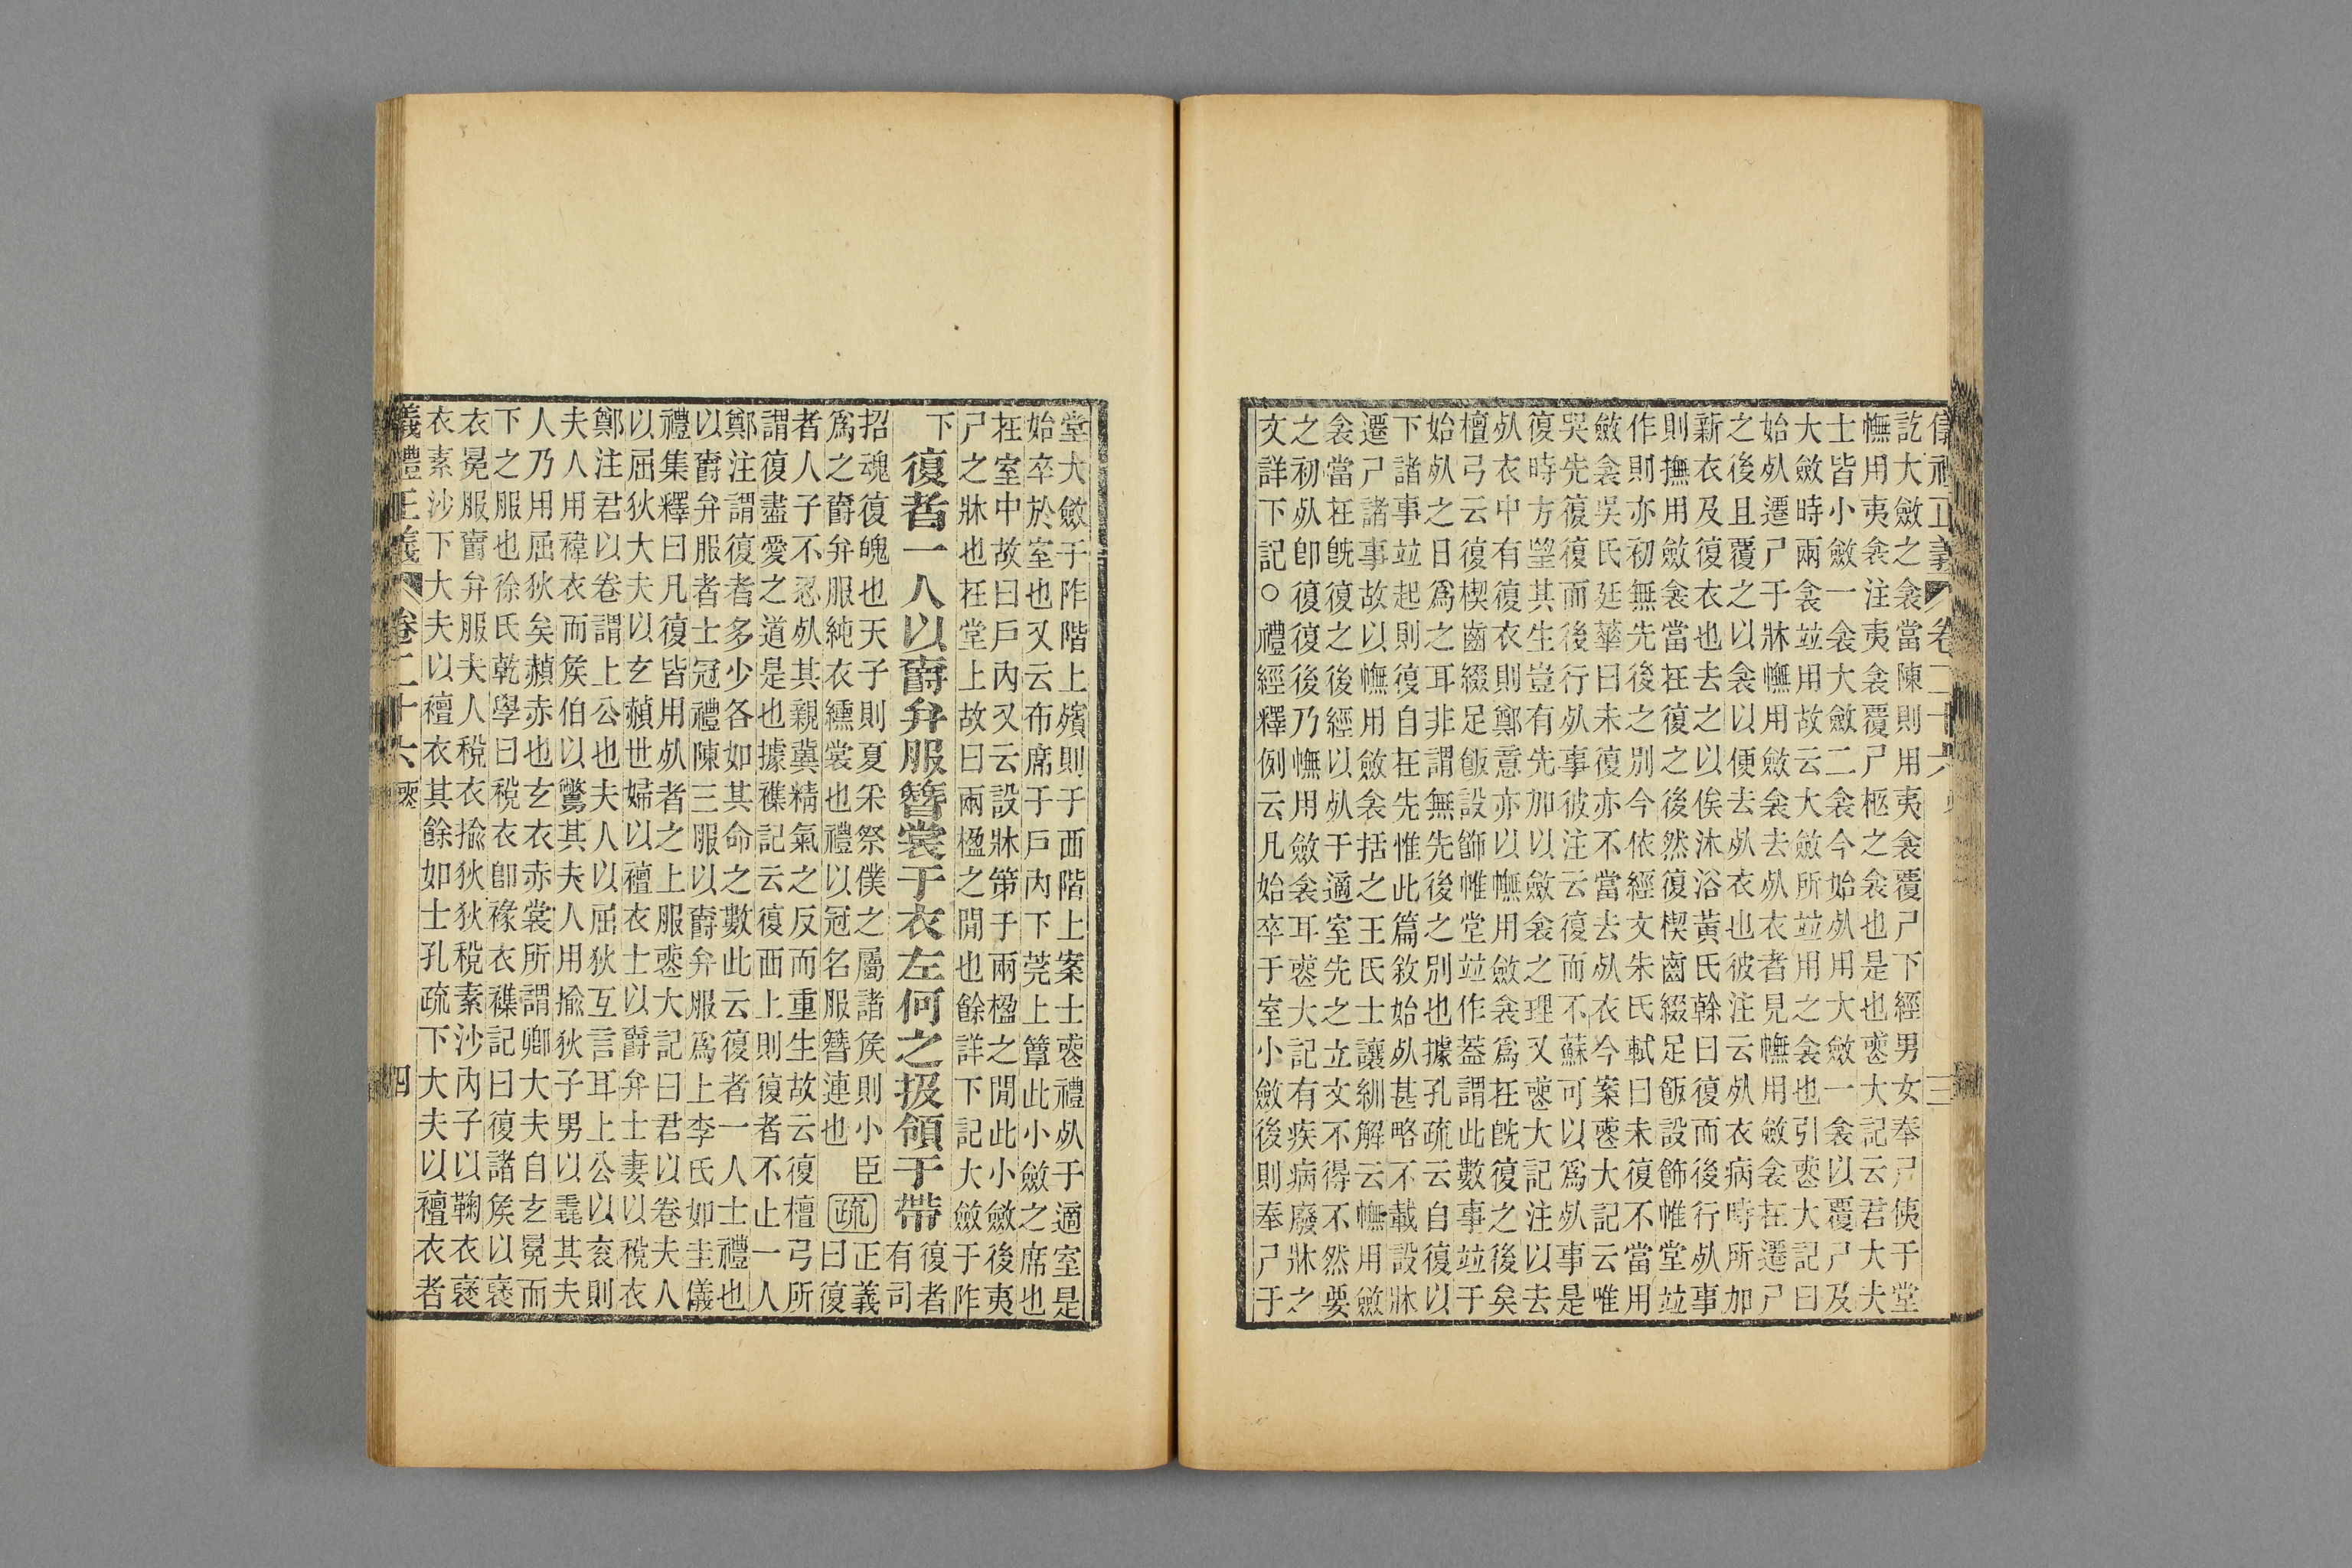 儀禮正義 卷二十六 三
訖大斂之衾當陳則用夷衾覆尸下經男女奉尸侇于堂
幠用夷衾注夷衾覆尸柩之衾也是也喪大記云君大夫
士皆小斂一衾大斂二衾今始死用大斂一衾以覆尸及
大斂時兩衾並用故云大斂所並用之衾也引喪大記曰
始死遷尸于牀幠用斂衾去死衣者見幠用斂衾在遷尸
之後且覆之以衾以便去死衣也彼注云死衣病時所加
新衣及復衣也去之以俟沐浴黃氏榦曰復而後行死事
則撫用斂衾當在復之後然復楔齒綴足飯設飾帷堂並
作則亦初無先後之別今依經文朱氏軾曰未復不當用
斂衾吳氏廷華曰未復亦不當去死衣今案喪大記云唯
哭先復復而後行死事彼注云復而不蘇可以爲死事是
復時方望其生豈有先加以斂衾之理又喪大記注以去
死衣中有復衣則鄭意亦以幠用斂衾爲在旣復之後矣
檀弓云復楔齒綴足飯設飾帷堂並作蓋謂此數事並于
始死之日爲之耳非謂無先後之別也據孔疏云自復以
下諸事並起則復自在先惟此篇敘始死甚略不載設牀
遷尸諸事故以幠用斂衾括之王氏士讓紃解云幠用斂
衾當在旣復之後經以死于適室先之立文不得不然要
之初死卽復復後乃幠用斂衾耳喪大記有疾病廢牀之
文詳下記○禮經釋例云凡始卒于室小斂後則奉尸于
堂大斂于阼階上殯則于西階上案士喪禮死于適室是
始卒於室也又云布席于戶內下莞上簟此小斂之席也
在室中故曰戶內又云設牀笫于兩楹之閒此小斂後夷
尸之牀也在堂上故曰兩楹之閒也餘詳下記大斂于阼
下
復者一人以爵弁服簪裳于衣左何之扱領于帶
復者
有司
招魂復魄也天子則夏采祭僕之屬諸侯則小臣
爲之爵弁服純衣纁裳也禮以冠名服簪連也
疏
正義
曰復
者人子不忍死其親冀精氣之反而重生故云復檀弓所
謂復盡愛之道是也據襍記云復西上則復者不止一人
鄭注謂復者多少各如其命之數此云復者一人士禮也
以爵弁服者士冠禮陳三服以爵弁服爲上李氏如圭儀
禮集釋曰凡復皆用死者之上服喪大記曰君以卷夫人
以屈狄大夫以玄赬世婦以襢衣士以爵弁士妻以稅衣
鄭注君以卷謂上公也夫人以屈狄互言耳上公以衮則
夫人用褘衣而侯伯以鷩其夫人用揄狄子男以毳其夫
人乃用屈狄矣赬赤也玄衣赤裳所謂卿大夫自玄冕而
下之服也徐氏乾學曰稅衣卽褖衣襍記曰復諸侯以襃
衣冕服爵弁服夫人稅衣揄狄狄稅素沙內子以鞠衣襃
衣素沙下大夫以襢衣其餘如士孔疏下大夫以襢衣者
儀禮正義 卷二十六 喪 四